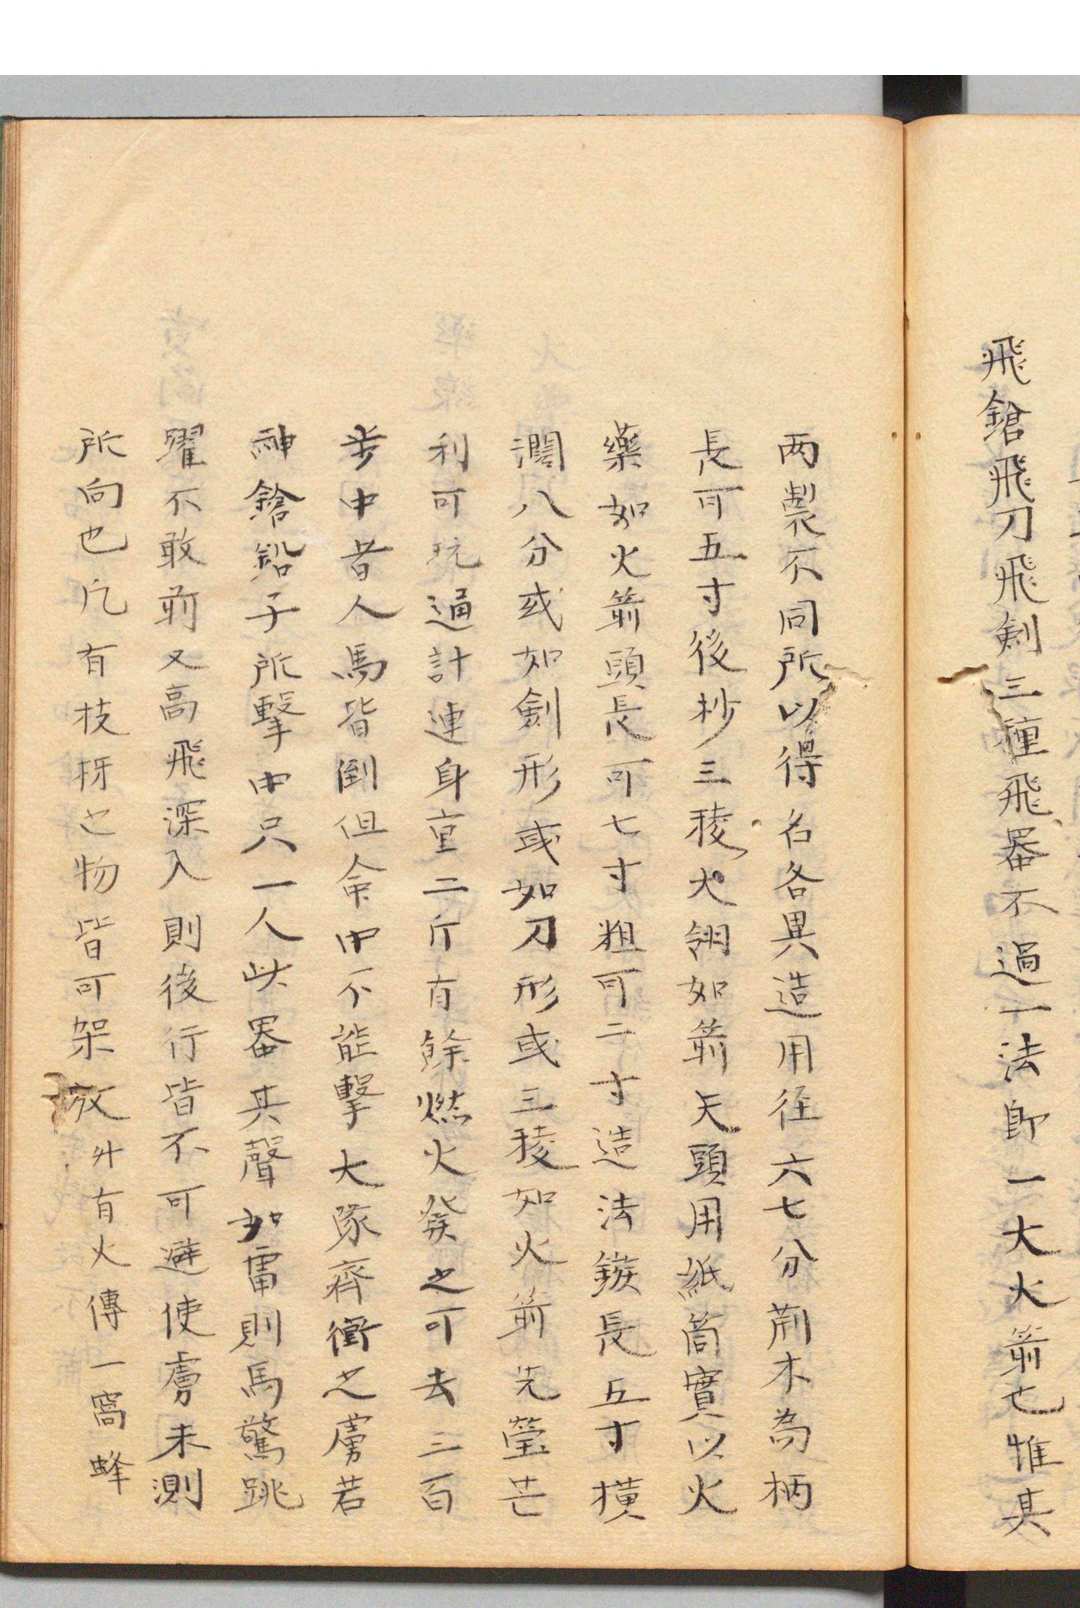 飛鎗飛刀飛劍三種飛器不過一法即一大火箭也惟其
两製不同所以得名各異造用径六七分荊木為柄
長可五寸後杪三稜大翎如箭矢頭用紙筒實以火
藥如火箭頭長可七寸粗可二寸造法鏃長五寸横
濶八分或如劍形或如刀形或三稜如火箭先瑩芒
利可玩通計連身重二斤有餘燃火發之可去三百
步中者人馬皆倒但命中不能擊大隊齊衝之虜若
神鎗鉛子所擊中只一人此器其聲如雷則馬驚跳
躍不敢前又高飛深入則後行皆不可避使虜未測
所向也凡有枝枒之物皆可架放外有火傳一窩蜂